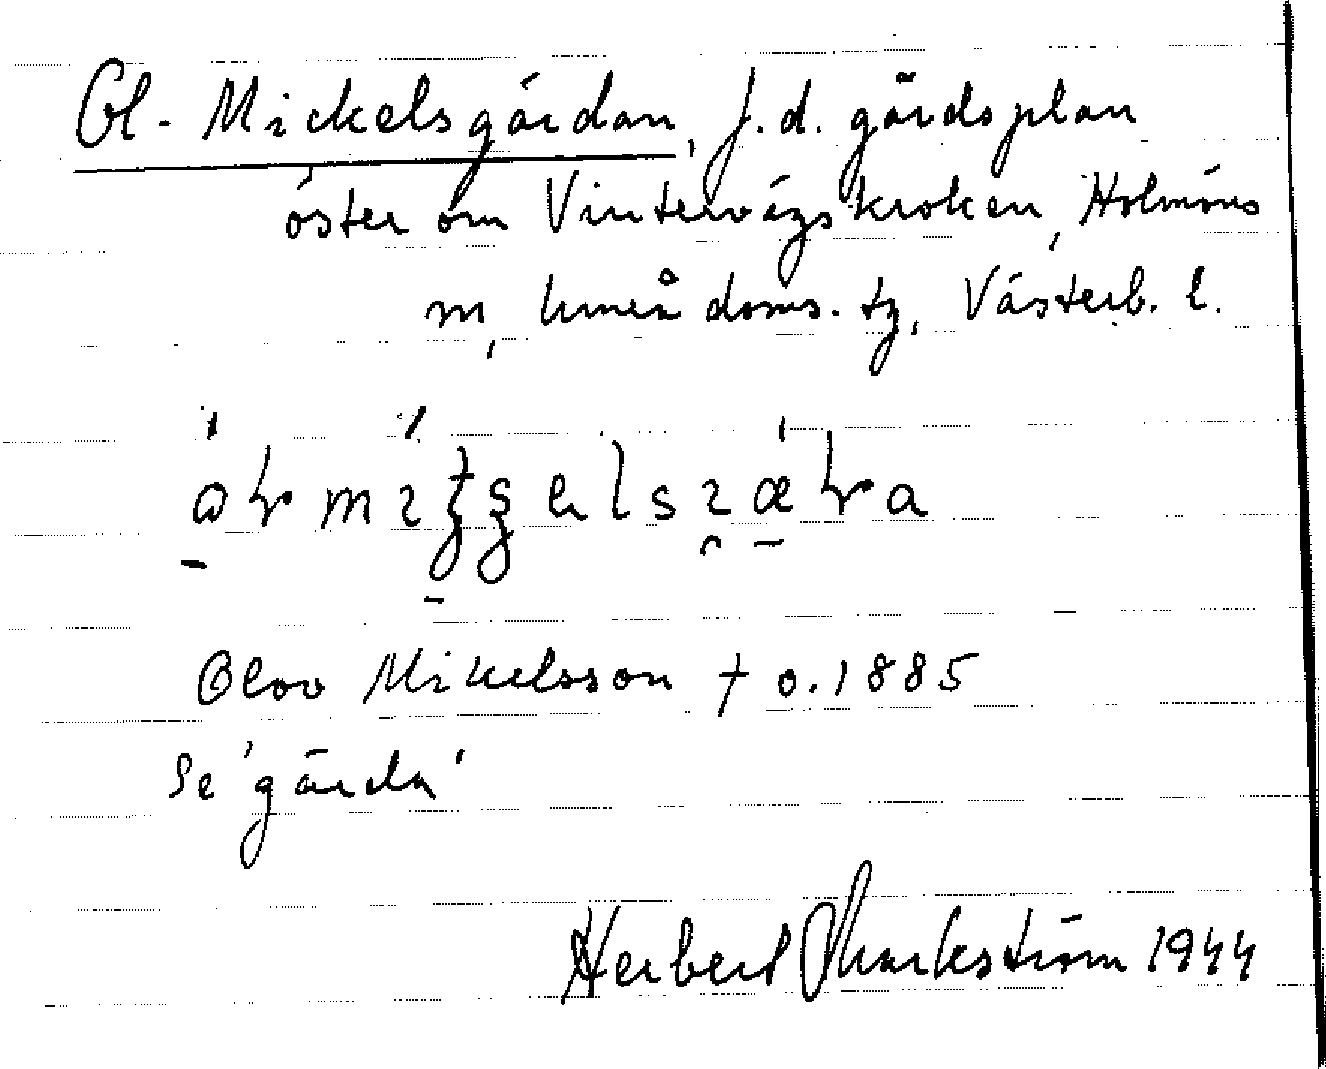 Ol-Mickelsgärdan, f.d. gårdsplan
öster om Vintervägskroken, Holmöns
sn, Umeå doms. tg, Västerb. l.
Olov Mikelsson † o. 1885
Se 'gärda'
Herbert Markström 1944